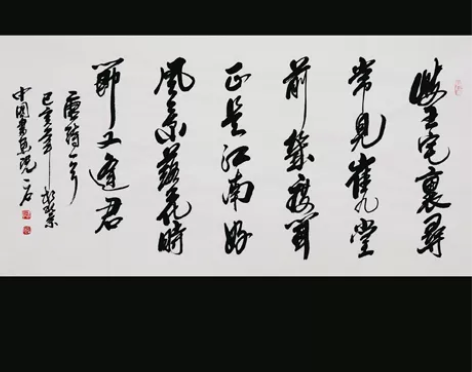 岐王宅裏尋
常見崔九堂
前幾度聞
正是江南好
風景落花時
節又逢君
己亥年
中国書画院